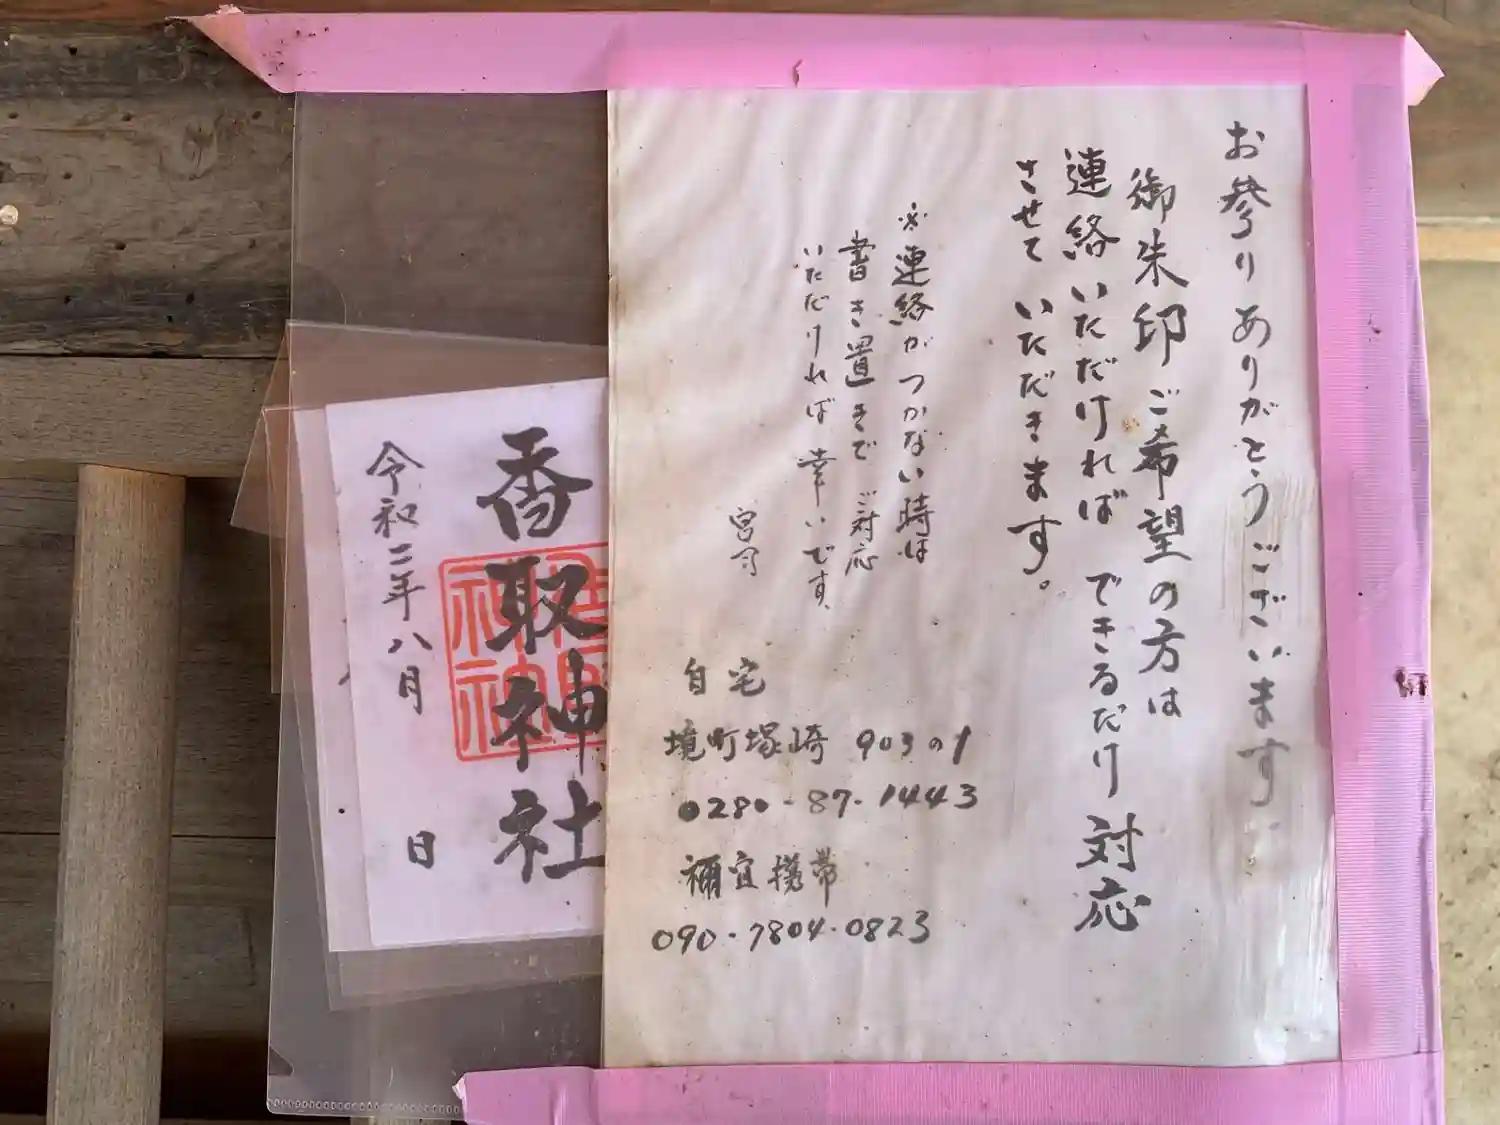 お参りありがとうございます
御朱印ご希望の方は
連絡いただければ できるだけ対応
させていただきます。
※連絡がつかない時は
書き置きで ご対応
いただければ幸いです。
宮司
自宅
境町塚崎 903の1
0280-87-1443
禰宜携帯
090-7804-0823
香取神社
令和二年八月 日